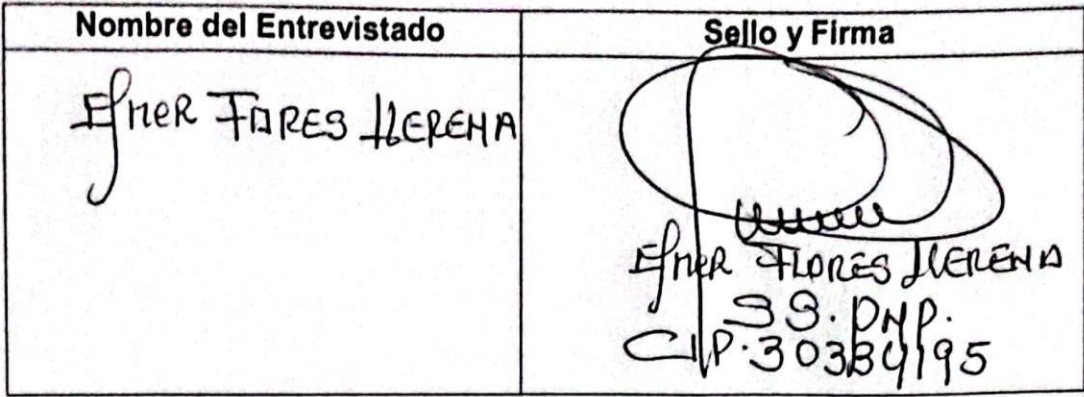 Nombre del Entrevistado
Sello y Firma
Efner FLORES LLERENA
Efner FLORES LLERENA
SS. PNP.
CIP. 30384195